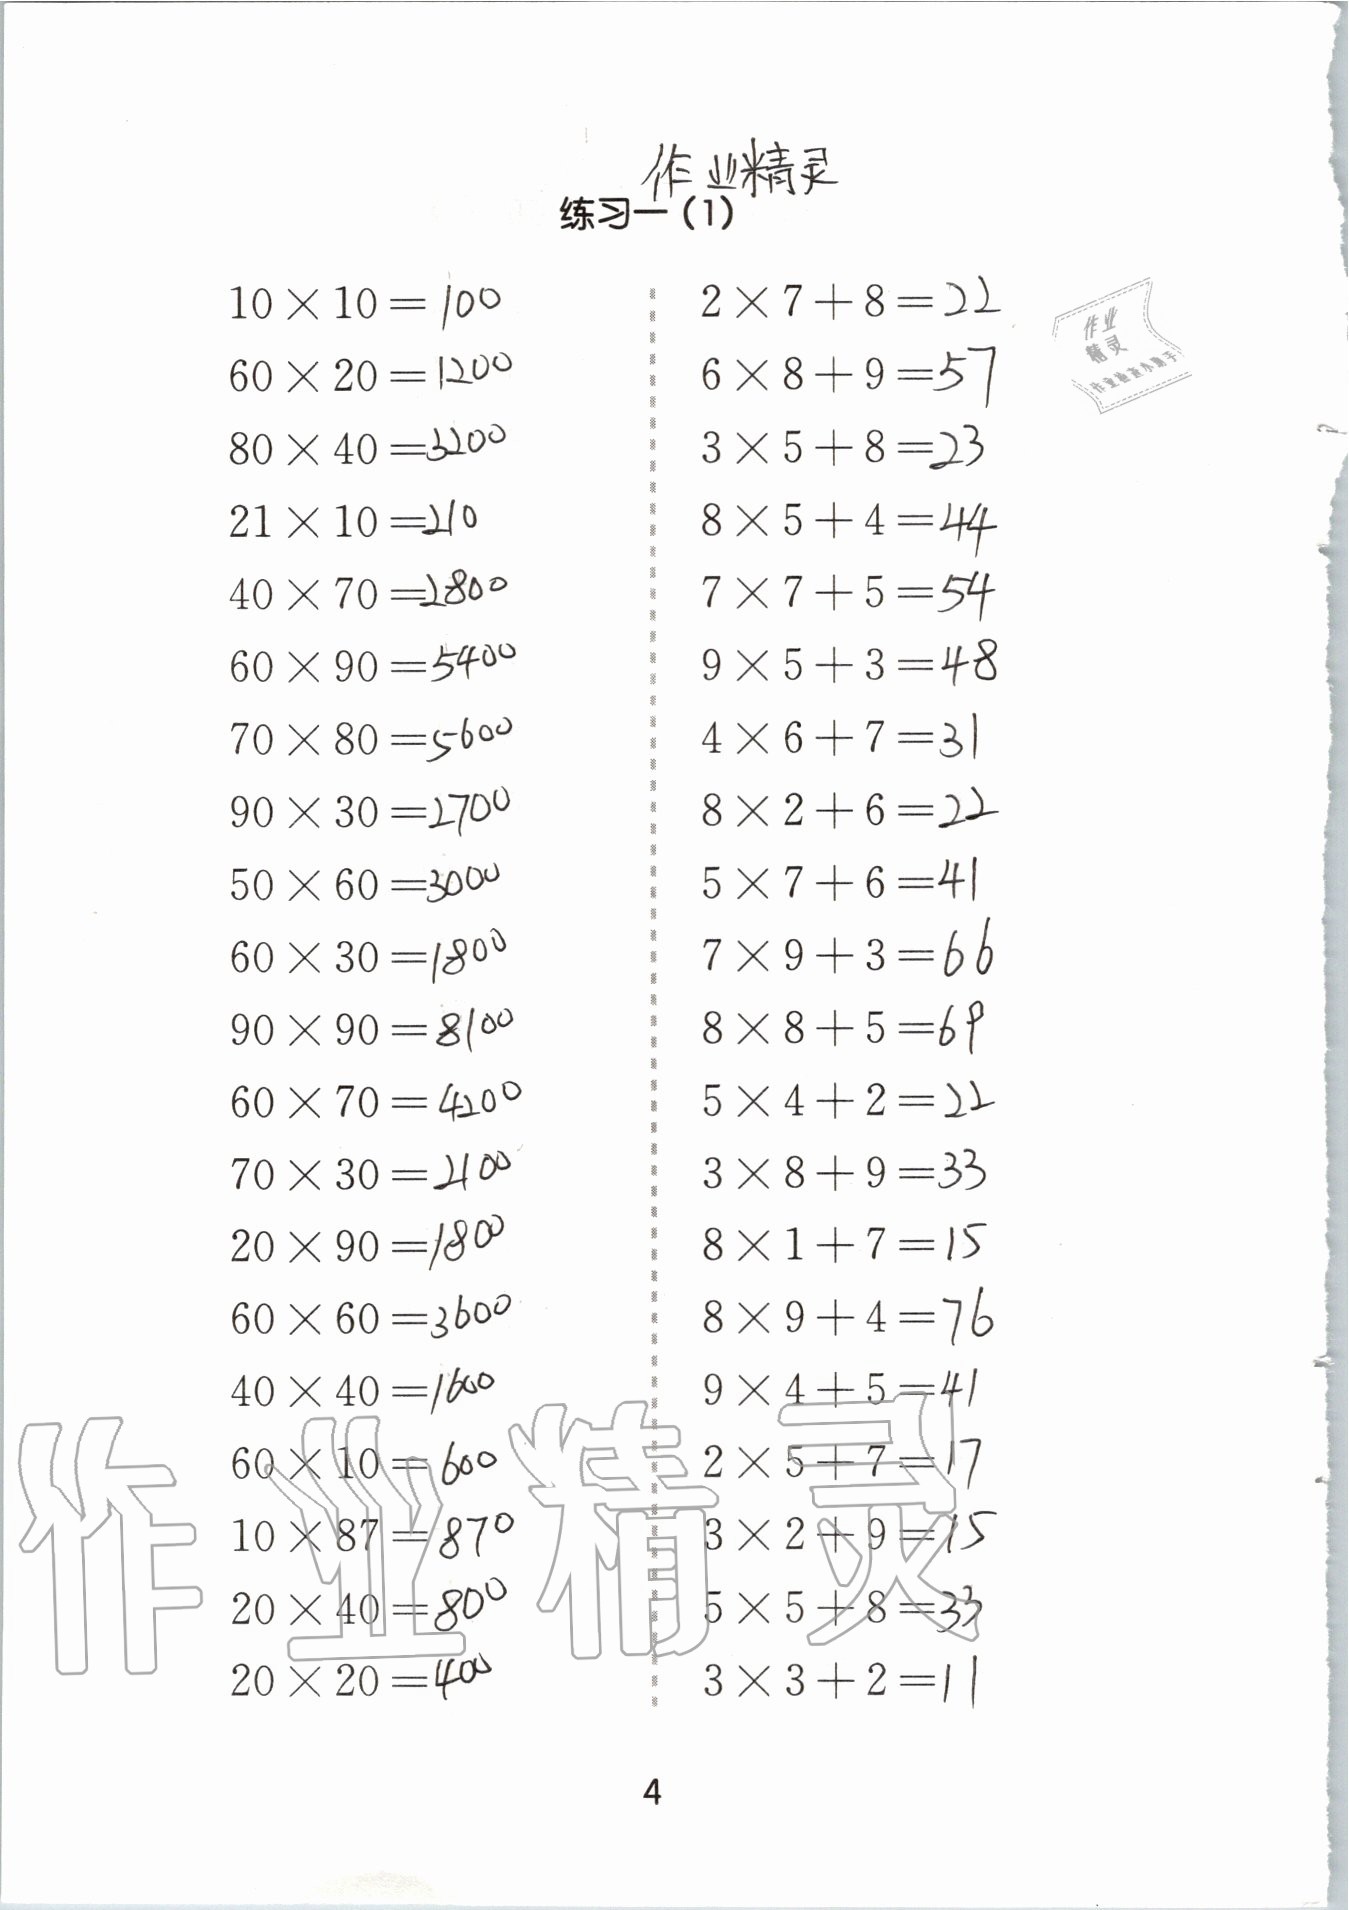 作业精灵
练习一(1)
10×10=100
60×20=1200
80×40=3200
21×10=210
40×70=2800
60×90=5400
70×80=5600
90×30=2700
50×60=3000
60×30=1800
90×90=8100
60×70=4200
70×30=2100
20×90=1800
60×60=3600
40×40=1600
60×10=600
10×87=870
20×40=800
20×20=400
2×7+8=22
6×8+9=57
3×5+8=23
8×5+4=44
7×7+5=54
9×5+3=48
4×6+7=31
8×2+6=22
5×7+6=41
7×9+3=66
8×8+5=69
5×4+2=22
3×8+9=33
8×1+7=15
8×9+4=76
9×4+5=41
2×5+7=17
3×2+9=15
5×5+8=33
3×3+2=11
作业
精灵
作业精灵
4